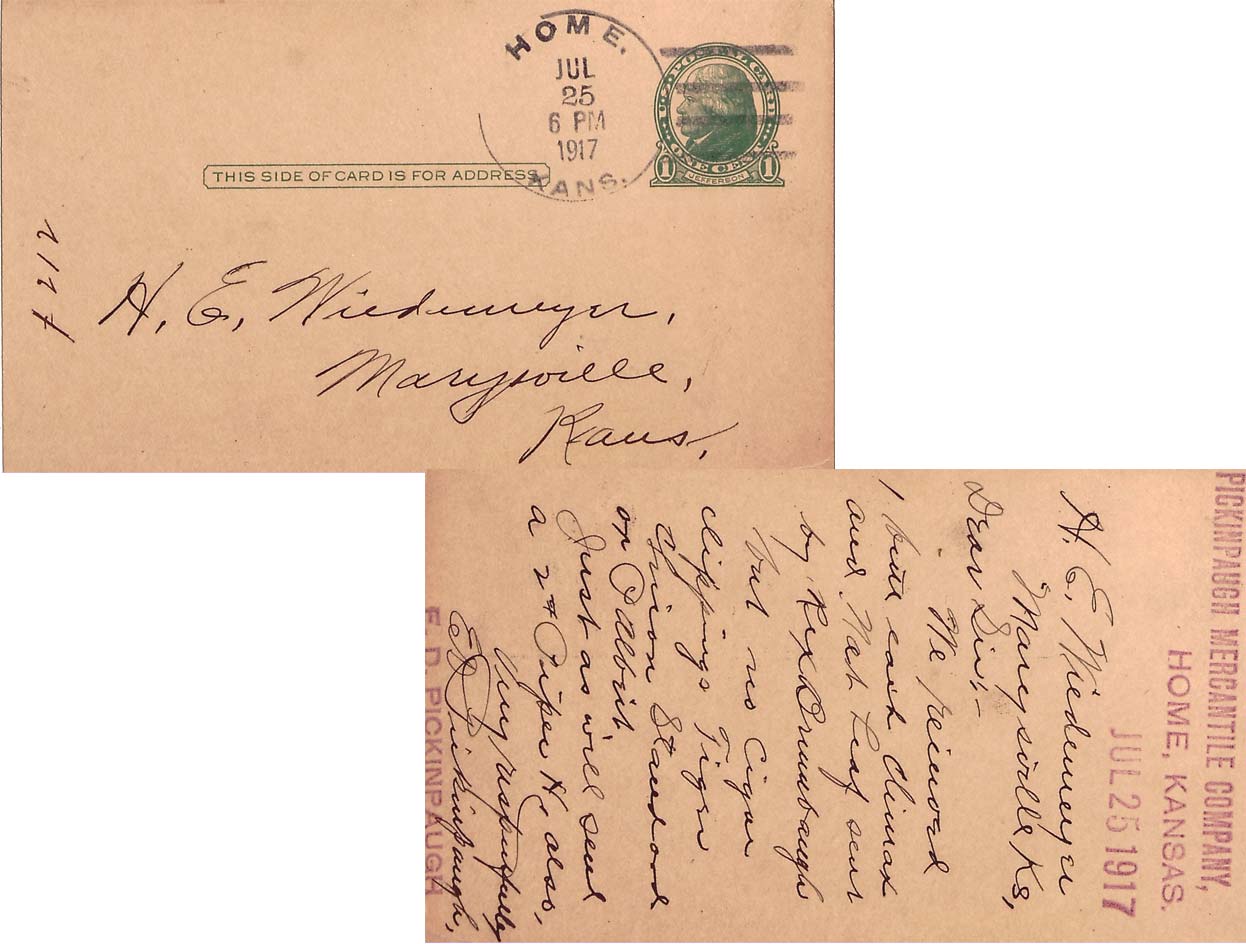 HOME.
JUL
25
6 PM
1917
KANS.
U.S. POSTAL CARD
ONE CENT
1 1
JEFFERSON
THIS SIDE OF CARD IS FOR ADDRESS
H. E. Wiedemeyer,
Marysville,
Kans,
PICKINPAUGH MERCANTILE COMPANY,
HOME, KANSAS.
JUL 25 1917
H. E. Wiedemeyer
Marysville Ks,
Dear Sir:-
We reicevd
1 butt each Climax
and Nat Leaf sent
by Rex Brumbaugh
but no Cigar
clippings Tiger
Union Standard
or
Just as well send
a 2# Piper Hc also,
Very respectfully
ED Pickinpaugh,
E. D. PICKINPAUGH